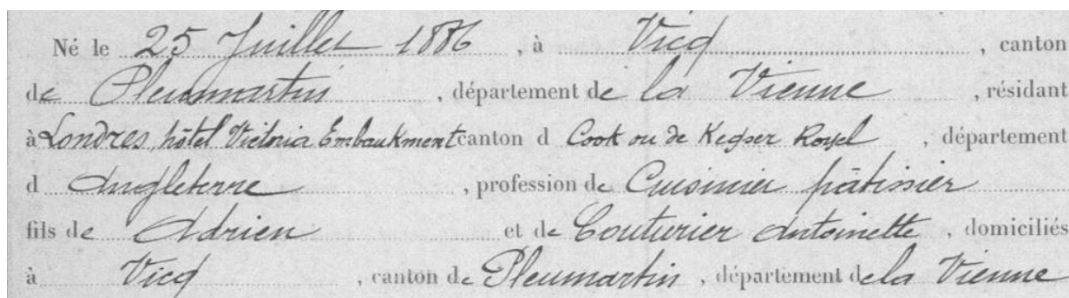 Né le 25 Juillet 1886, à Vicq, canton
de Pleumartin, département de la Vienne, résidant
à Londres, hôtel Victoria Embaukment canton d Cook ou de Keyser Royel, département
d Angleterre, profession de Cuisinier pâtissier
fils de Adrien et de Couturier Antoinette, domiciliés
à Vicq, canton de Pleumartin, département de la Vienne